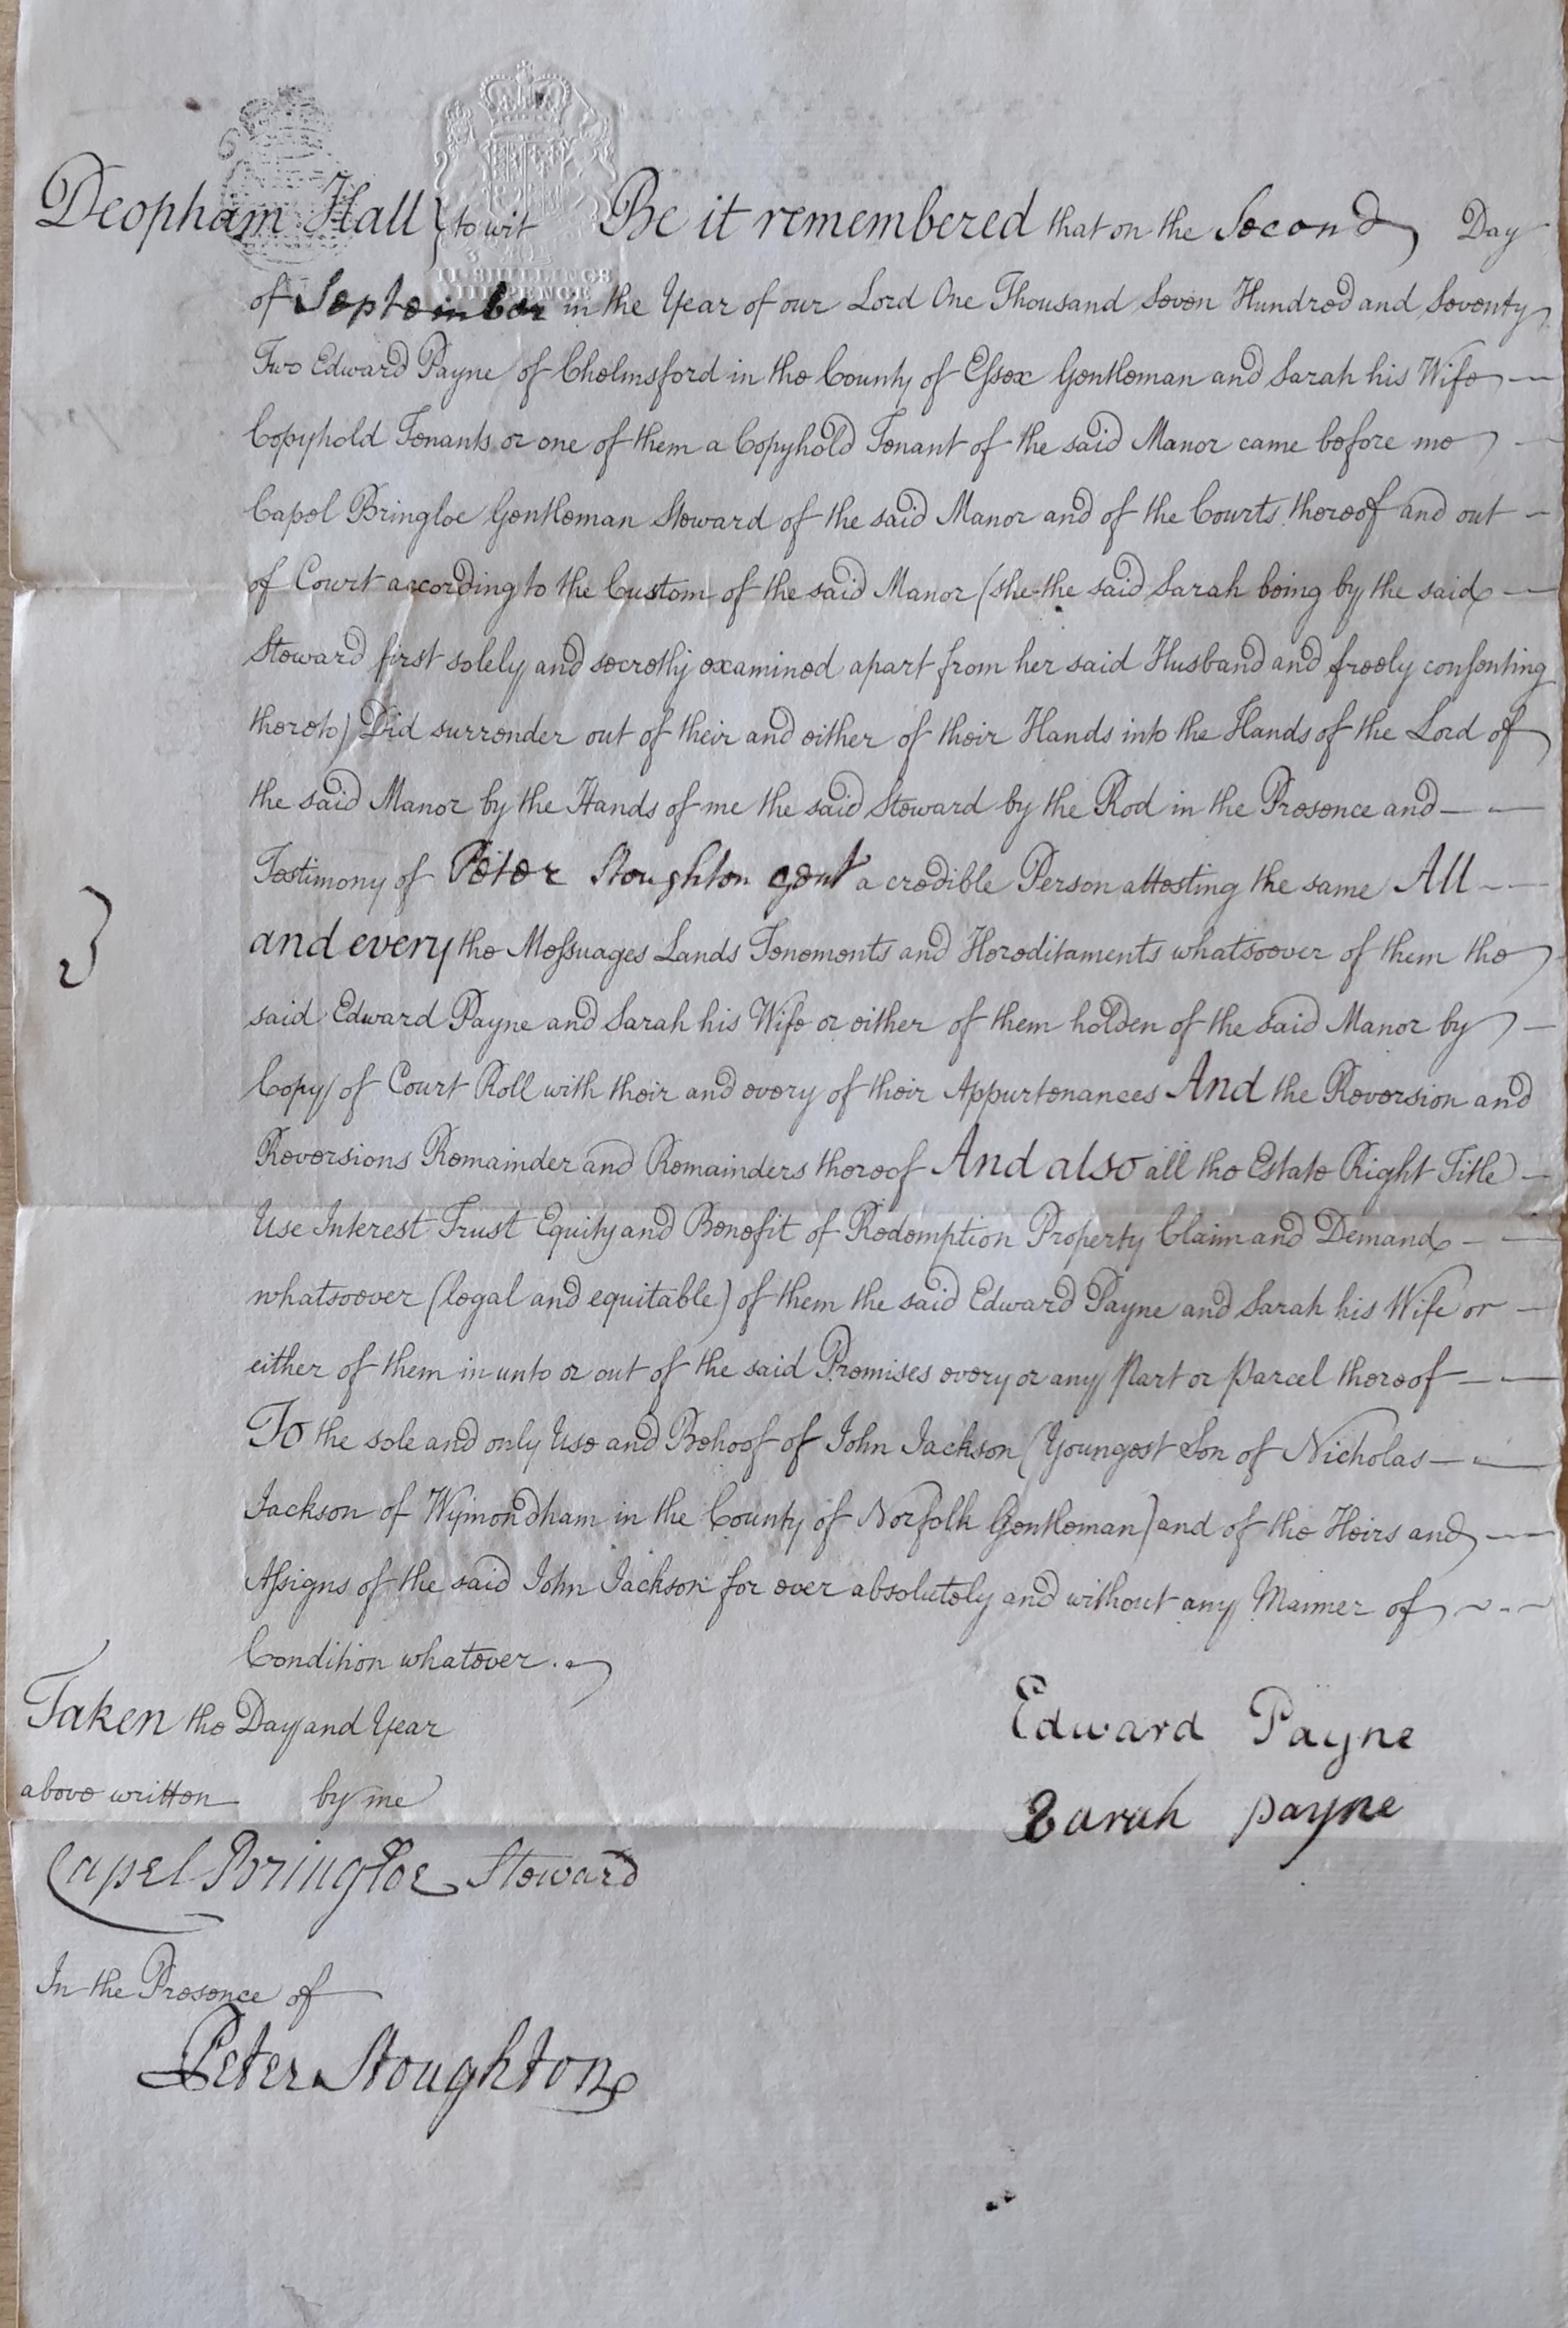 Deopham Hall } to wit Be it remembered that on the Second Day
II SHILLINGS
PENCE
of September in the Year of our Lord One Thousand Seven Hundred and Seventy
Two Edward Payne of Chelmsford in the County of Essex Gentleman and Sarah his Wife
Copyhold Tenants or one of them a Copyhold Tenant of the said Manor came before me
Capel Bringloe Gentleman Steward of the said Manor and of the Courts thereof and out
of Court according to the Custom of the said Manor (she the said Sarah being by the said
Steward first solely and secretly examined apart from her said Husband and freely consenting
thereto) Did surrender out of their and either of their Hands into the Hands of the Lord of
the said Manor by the Hands of me the said Steward by the Rod in the Presence and
Testimony of Peter Stoughton gent a credible Person attesting the same All
and every the Messuages Lands Tenements and Hereditaments whatsoever of them the
3
said Edward Payne and Sarah his Wife or either of them holden of the said Manor by
Copy of Court Roll with their and every of their Appurtenances And the Reversion and
Reversions Remainder and Remainders thereof And also all the Estate Right Title
Use Interest Trust Equity and Benefit of Redemption Property Claim and Demand
whatsoever (legal and equitable) of them the said Edward Payne and Sarah his Wife or
either of them in unto or out of the said Premises every or any Part or Parcel thereof
To the sole and only Use and Behoof of John Jackson (Youngest Son of Nicholas
Jackson of Wymondham in the County of Norfolk Gentleman) and of the Heirs and
Assigns of the said John Jackson for ever absolutely and without any Manner of
Condition whatever.
Taken the Day and Year
above written by me
Capel Bringloe Steward
Edward Payne
Sarah payne
In the Presence of
Peter Stoughton